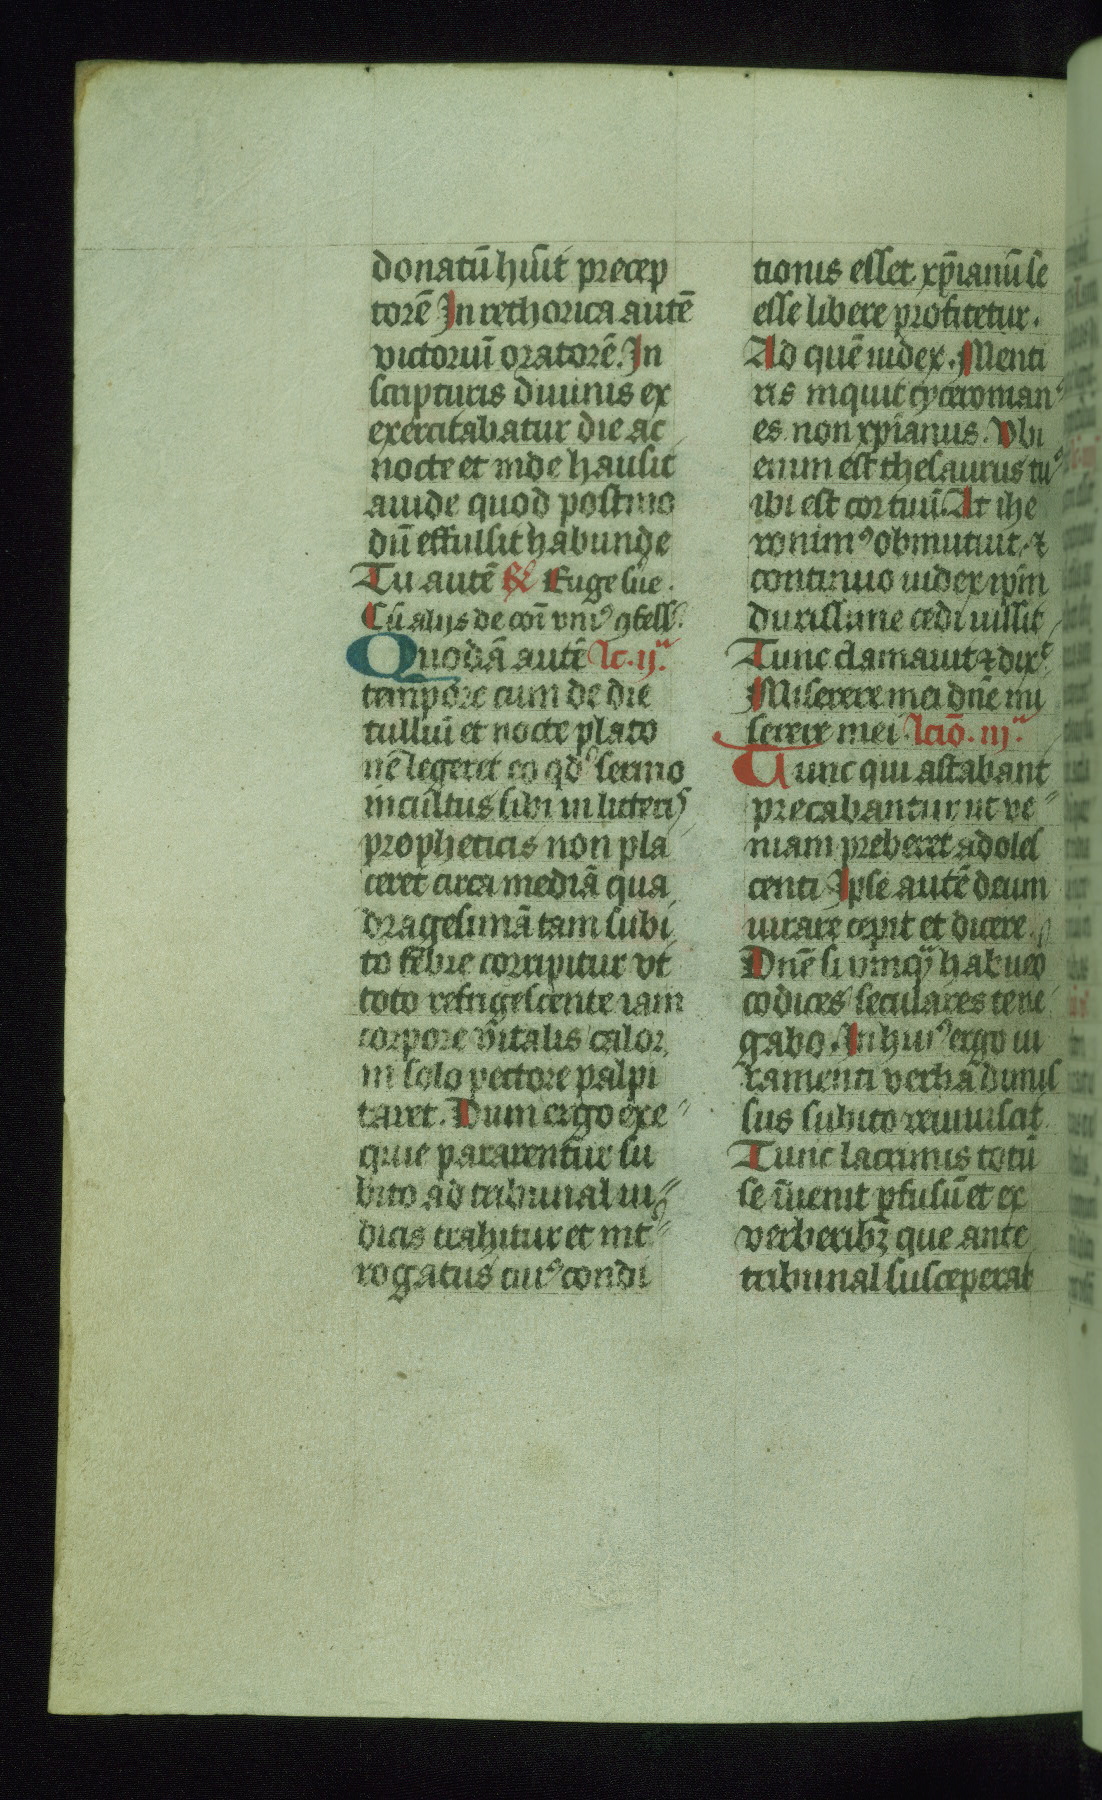 donatū hūit precep
torē In rethorica autē
victoriū oratorē. In
scripturis diuinis ex
exercitabatur die ac
nocte et inde hausit
auide quod postmo
dū effulsit habunde
Tu autē R Euge sūe.
Cū alijs de cōi vniꝰ ꝯfess.
Quodā autē lc. ij.ᵃ
tempore cum de die
tulliū et nocte plato
nē legeret eo qd sermo
incultus sibi in litteris
propheticis non pla
ceret circa mediā qua
dragesimā tam subi
to febre corripitur vt
toto refrigescente iam
corpore vitalis calor
in solo pectore palpi
taret. Dum ergo exe
quie pararentur su
bito ad tribunal iu
dicis trahitur et int
rogatus cuiꝰ condi
tionis esset xp̄ianū se
esse libere profitetur.
Ad quē iudex. Menti
ris inquit cyceronianꝰ
es non xp̄ianus. Vbi
enim est thesaurus tuꝰ
ibi est cor tuū. At ihe
ronimꝰ obmutuit ⁊
continuo iudex ip̄m
durissime cedi iussit
Tunc clamauit ⁊ dix
Miserere mei dn̄e mi
serere mei lciō. iij.ᵃ
Tunc qui astabant
precabantur ut ve
niam preberet adoles
centi Ipse autē deum
iurare cepit et dicere.
Dn̄e si vmqͣ habuero
codices seculares te ne
gabo. In huiꝰ ergo iu
ramenti verba dimis
sus subito reuiuiscit
Tunc lacrimis totū
se īuenit ꝑfusū et ex
verberibꝫ que ante
tribunal susceperat